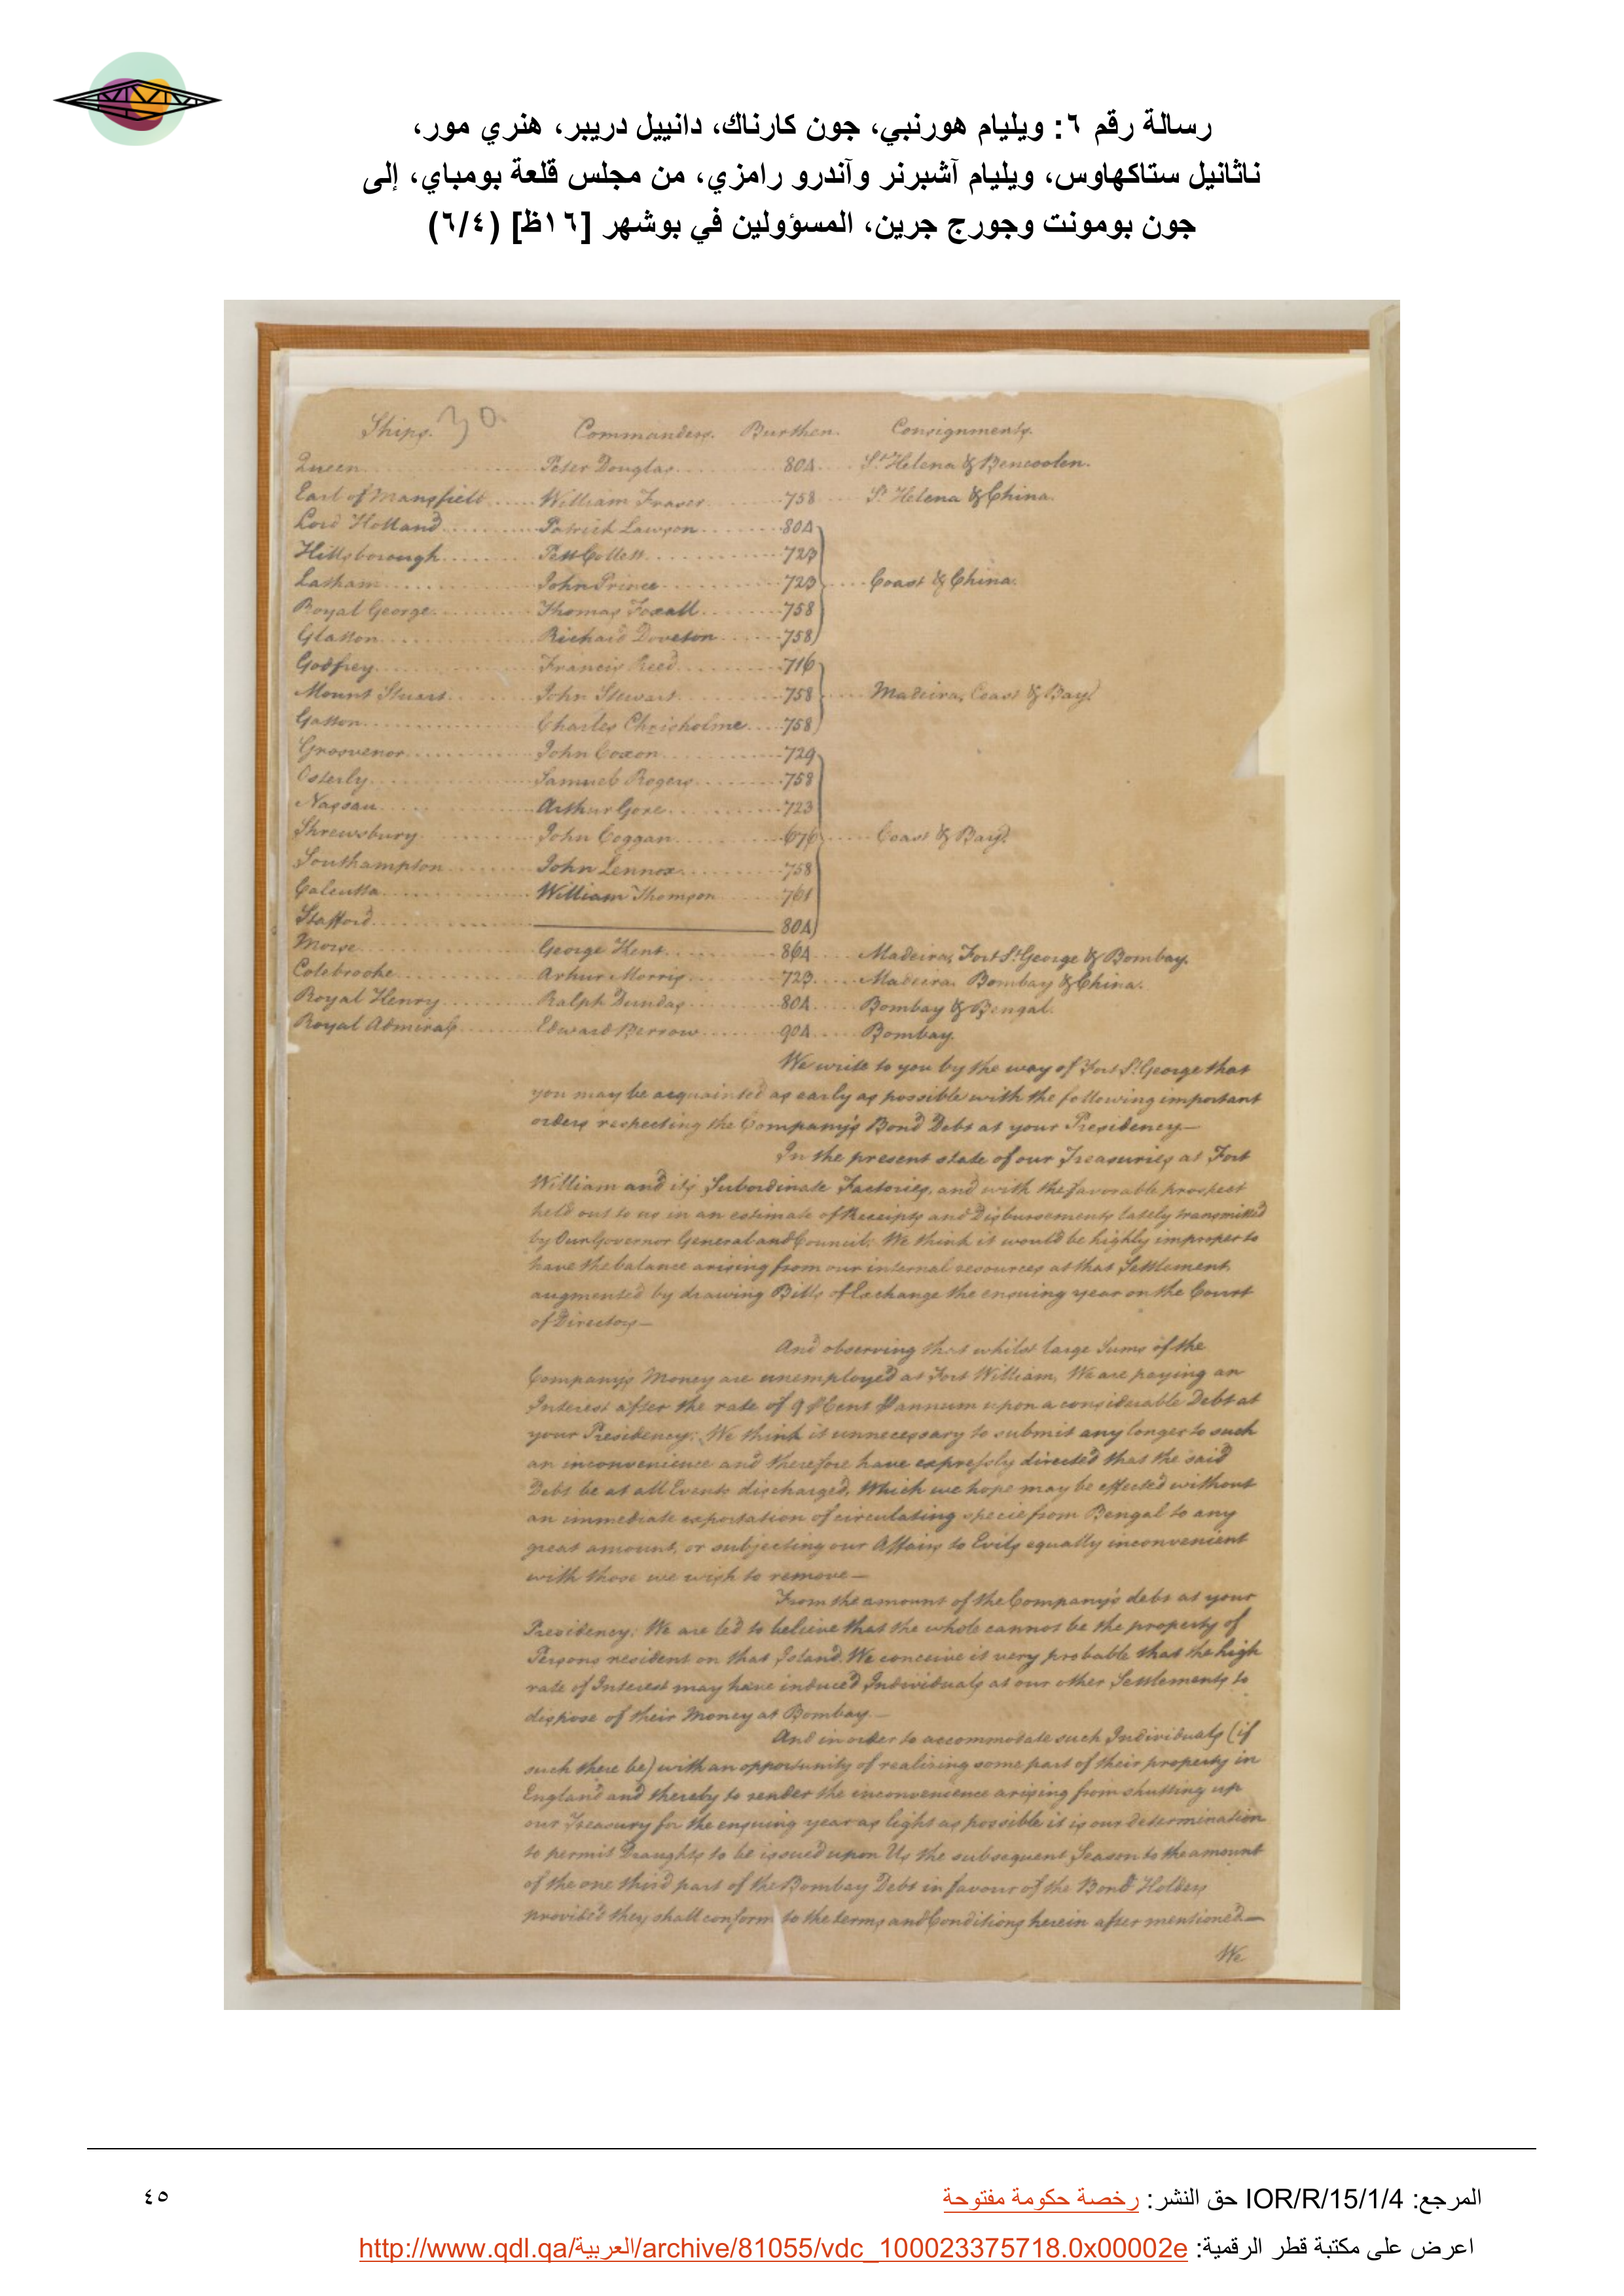 رسالة رقم ٦: ويليام هورنبي، جون كارناك، دانييل دريبر، هنري مور،
ناثانيل ستاكهاوس، ويليام آشبرنر وآندرو رامزي، من مجلس قلعة بومباي، إلى
جون بومونت وجورج جرين، المسؤولين في بوشهر [١٦ظ] (٦/٤)
Ships. 30. Commanders. Burthen. Consignments.
Queen Peter Douglas 804 St Helena & Bencoolen.
Earl of Mansfield William Fraser 758 St Helena & China.
Lord Holland Patrick Lawson 804
Hillsborough Pitt Collett 723
Latham John Prince 723 Coast & China.
Royal George Thomas Foxall 758
Glatton Richard Doveton 758
Godfrey Francis Reed 716
Mount Stuart John Stewart 758 Madeira, Coast & Bay
Gatton Charles Chrisholme 758
Grosvenor John Coxon 729
Osterly Samuel Rogers 758
Nassau Arthur Gore 723
Shrewsbury John Coggan 676 Coast & Bay
Southampton John Lennox 758
Calcutta William Thomson 761
Stafford 804
Morse George Kent 864 Madeira, Fort St George & Bombay.
Colebrooke Arthur Morris 723 Madeira Bombay & China.
Royal Henry Ralph Dundas 804 Bombay & Bengal.
Royal Admiral Edward Berrow 904 Bombay.
We write to you by the way of Fort St George that
you may be acquainted as early as possible with the following important
orders respecting the Company's Bond Debt at your Presidency—
In the present state of our Treasuries at Fort
William and its Subordinate Factories, and with the favorable prospect
held out to us in an estimate of Receipts and Disbursements lately transmitted
by Our Governor General and Council; We think it would be highly improper to
have the balance arising from our internal resources at that Settlement,
augmented by drawing Bills of Exchange the ensuing year on the Court
of Directors—
And observing that whilst large Sums of the
Company's Money are unemployed at Fort William, We are paying an
Interest after the rate of 9 P Cent P annum upon a considerable Debt at
your Presidency; We think it unnecessary to submit any longer to such
an inconvenience and therefore have expressly directed that the said
Debt be at all Events discharged, Which we hope may be effected without
an immediate exportation of circulating specie from Bengal to any
great amount, or subjecting our Affairs to Evils equally inconvenient
with those we wish to remove—
From the amount of the Company's debt at your
Presidency; We are led to believe that the whole cannot be the property of
Persons resident on that Island. We conceive it very probable that the high
rate of Interest may have induced Individuals at our other Settlements to
dispose of their Money at Bombay.—
And in order to accommodate such Individuals (if
such there be) with an opportunity of realizing some part of their property in
England and thereby to render the inconvenience arising from shutting up
our Treasury for the ensuing year as light as possible it is our determination
to permit Draughts to be issued upon Us the subsequent Season to the amount
of the one third part of the Bombay Debt in favour of the Bond Holders
provided they shall conform to the terms and Conditions herein after mentioned—
We
المرجع: IOR/R/15/1/4 حق النشر: رخصة حكومة مفتوحة
٤٥
اعرض على مكتبة قطر الرقمية: http://www.qdl.qa/العربية/archive/81055/vdc_100023375718.0x00002e